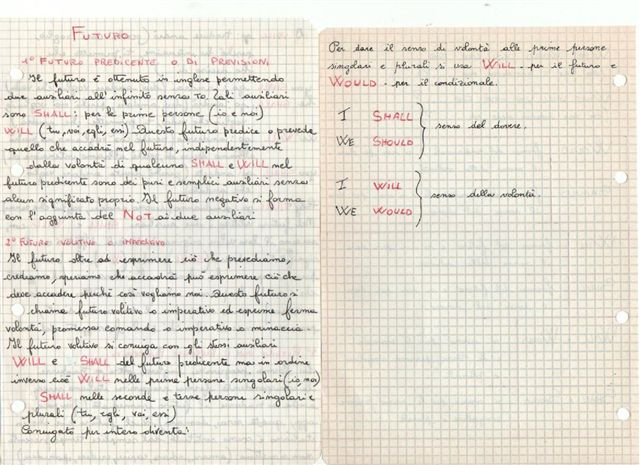 FUTURO
1° FUTURO PREDICENTE O DI PREVISIONI
Il futuro è ottenuto in inglese permettendo
due ausiliari all'infinito senza TO. Tali ausiliari
sono SHALL: per le prime persone (io e noi)
WILL (tu, voi, egli, essi). Questo futuro predice o prevede
quello che accadrà nel futuro, indipendentemente
dalla volontà di qualcuno SHALL e WILL nel
futuro predicente sono dei puri e semplici ausiliari senza
alcun significato proprio. Il futuro negativo si forma
con l'aggiunta del NOT ai due ausiliari
2° FUTURO VOLITIVO O IMPERATIVO
Il futuro oltre ad esprimere ciò che prevediamo,
crediamo, speriamo che accadrà può esprimere ciò che
deve accadere perché così vogliamo noi. Questo futuro si
chiama futuro volitivo o imperativo ed esprime ferma
volontà, promessa comando o imperativo o minaccia.
Il futuro volitivo si coniuga con gli stessi ausiliari
WILL e SHALL del futuro predicente ma in ordine
inverso cioè WILL nelle prime persone singolari (io, noi)
SHALL nelle seconde e terze persone singolari e
plurali (tu, egli, voi, essi)
Coniugato per intero diventa:
Per dare il senso di volontà alle prime persone
singolari e plurali si usa WILL - per il futuro e
WOULD - per il condizionale.
I SHALL
WE SHOULD
senso del dovere.
I WILL
WE WOULD
senso della volontà.